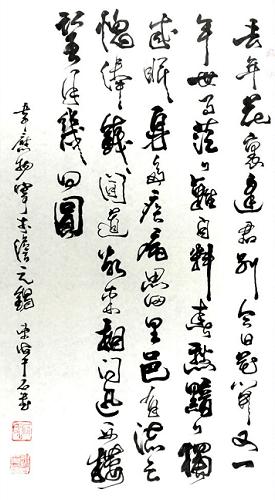 去年花裏逢君别今日花開又一
年世事茫々難自料春愁黯々獨
成眠身多疾病思田里邑有流亡
愧俸錢聞道欲來相問迅西樓
望月幾回圓
韋應物寄李儋元錫